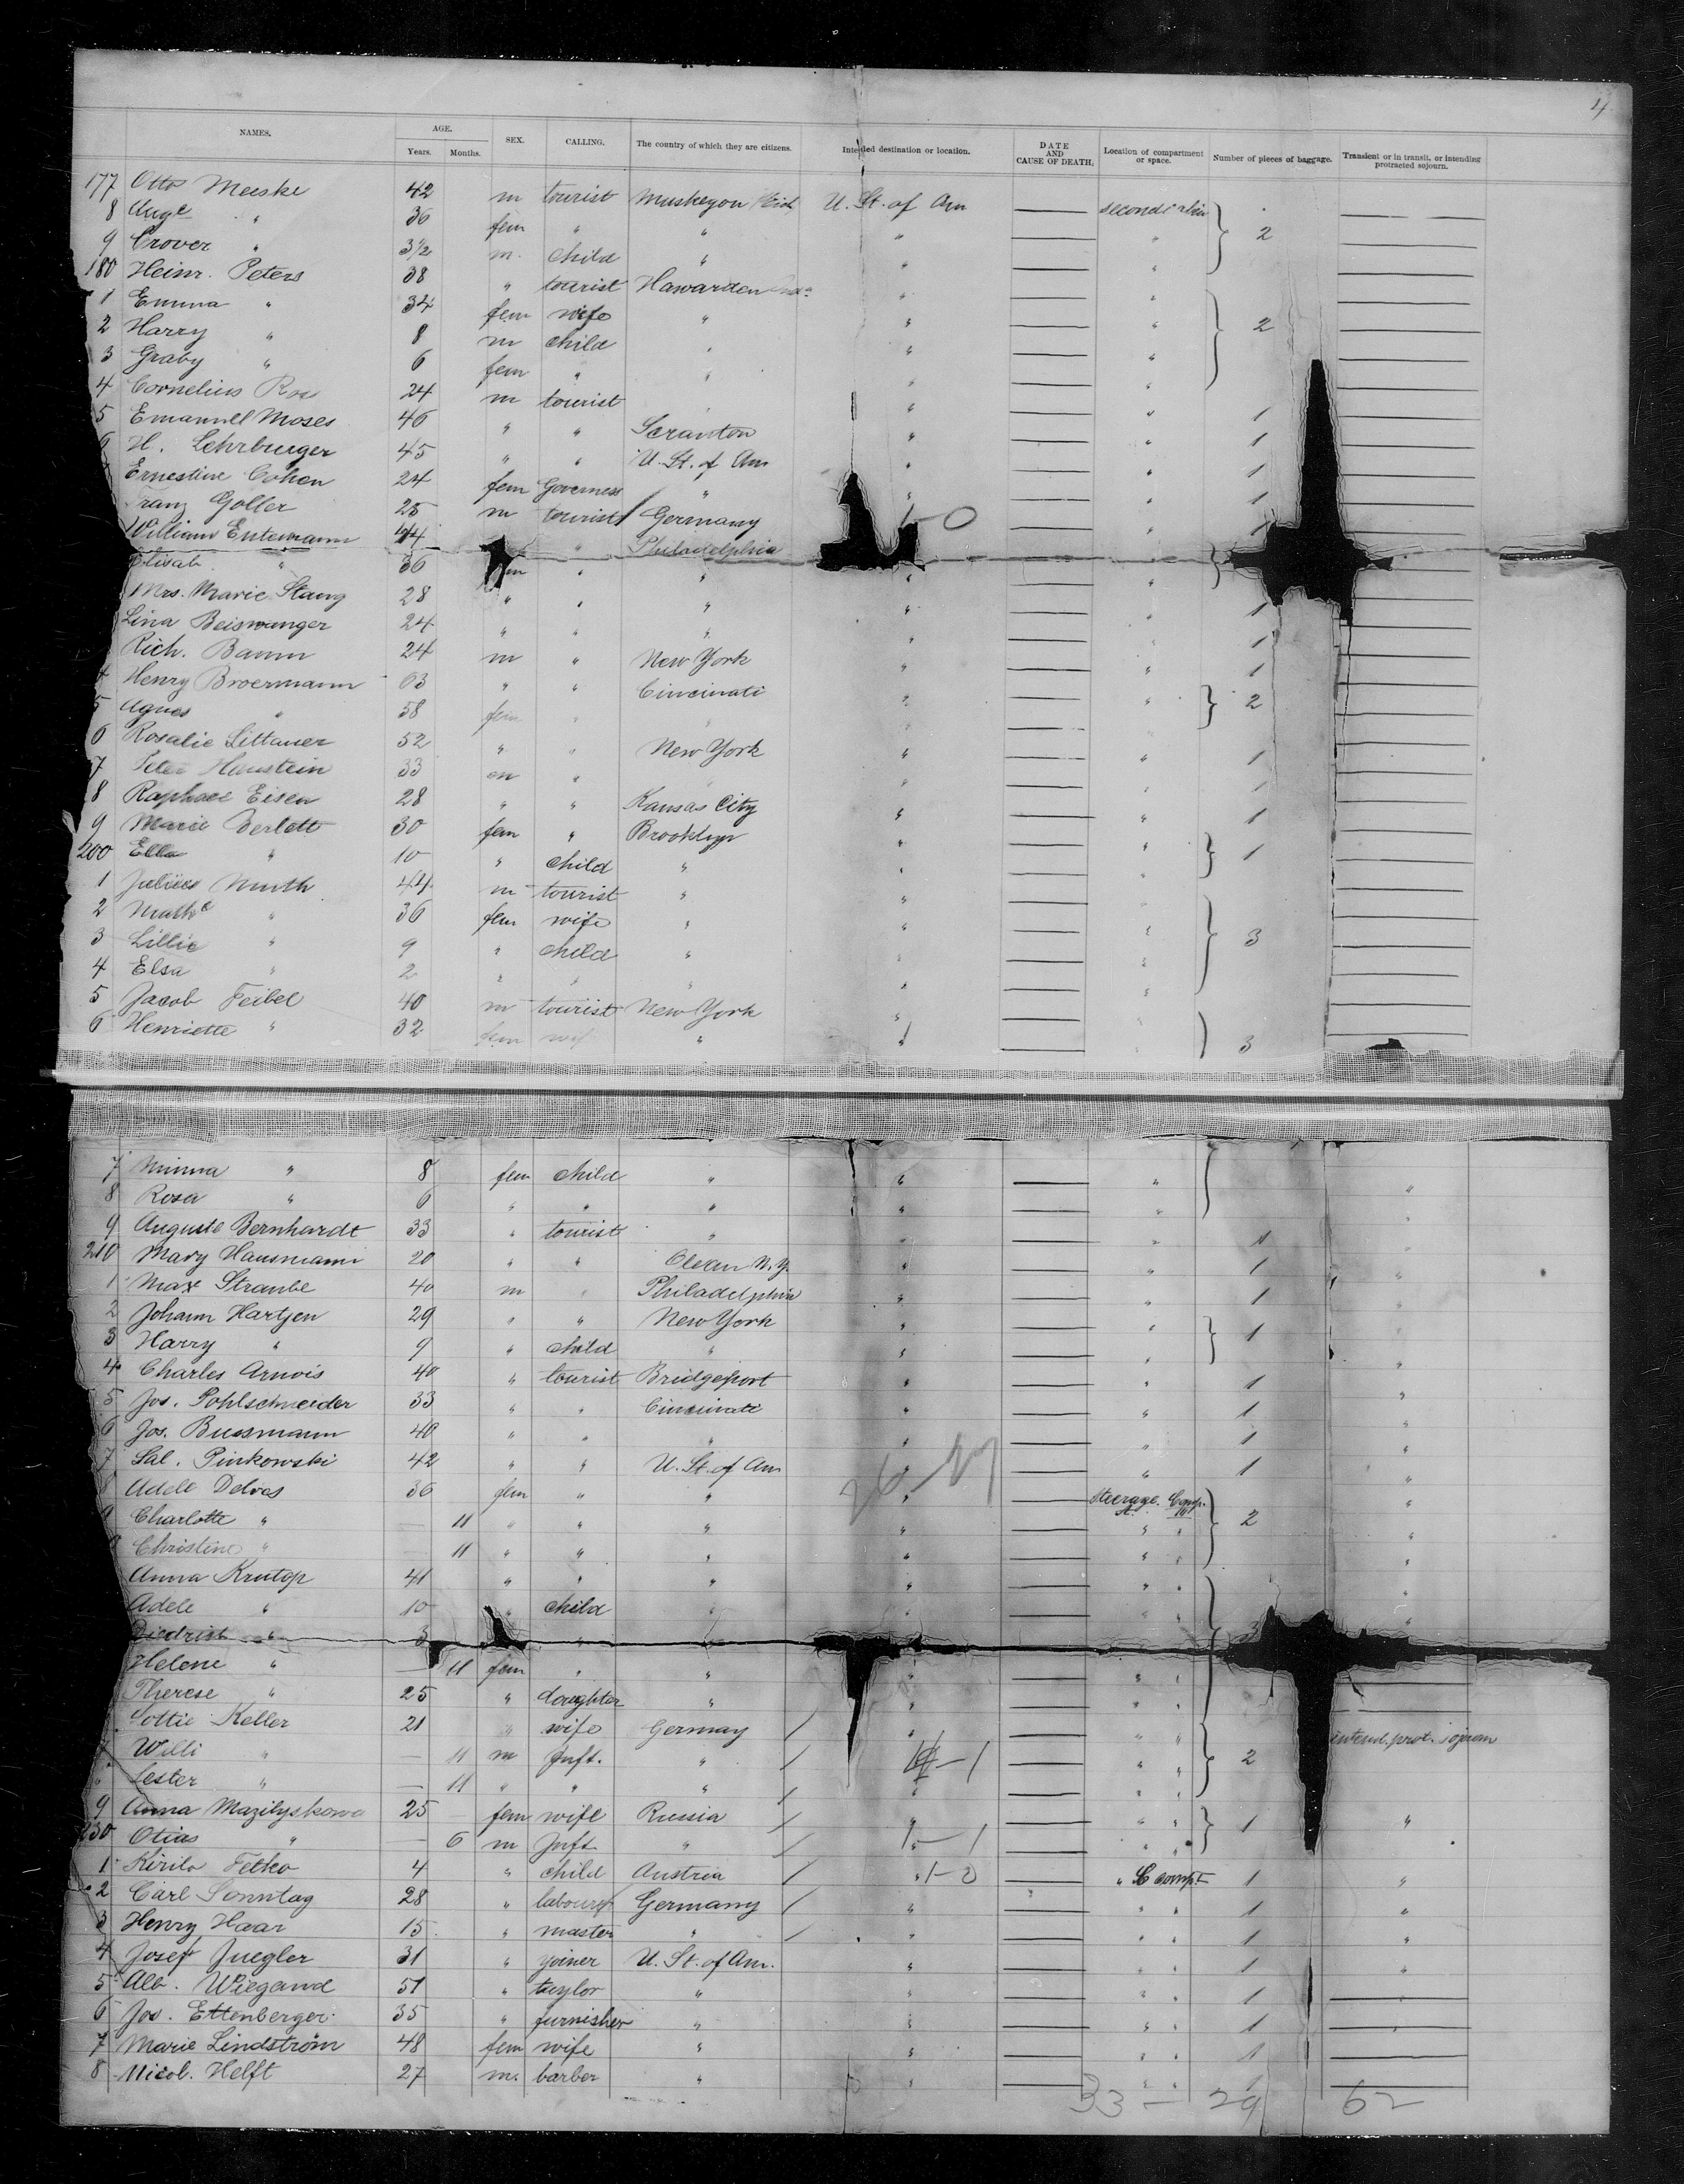 4
NAMES. AGE. Years. Months. SEX. CALLING. The country of which they are citizens. Intended destination or location. DATE AND CAUSE OF DEATH. Location of compartment or space. Number of pieces of baggage. Transient or in transit, or intending protracted sojourn.
177 Otto Meeske 42 m tourist Muskegon U. St. of Am second
8 Aug.e " 36 fem " " " " 2
9 Grover " 3½ m. child " " "
180 Heinr. Peters 38 " tourist Hawarden " "
1 Emma " 34 fem wife " " " 2
2 Harry " 8 m child " " "
3 Graby " 6 fem " " " "
4 Cornelius 24 m tourist " " 1
5 Emanuell Moses 46 " " Scranton " " 1
6 H. Lehrburger 45 " " U. St. of Am " " 1
Ernestine Cohen 24 fem Governess " " " 1
Franz Goller 25 m tourist Germany 1-0 1
William Entemann 44 " Philadelphia
Elisab. " 36 fem " " " "
Mrs. Marie Stang 28 " " " " " 1
Lina Beiswanger 24 " " " " " 1
Rich. Baum 24 m " New York " " 1
4 Henry Broermann 63 " " Cincinati " " 2
5 Agnes " 58 fem " " " "
6 Rosalie Littauer 52 " " New York " " 1
7 Peter Haustein 33 m " " " " 1
8 Raphael Eisen 28 " " Kansas City " " 1
9 Marie Berlett 30 fem " Brooklyn " " 1
200 Ella " 10 " child " " "
1 Julius Muth 44 m tourist " " "
2 Math.e " 36 fem wife " " " 3
3 Lillie " 9 " child " " "
4 Elsa " 2 " " " " "
5 Jacob Feibel 40 m tourist New York " "
6 Henriette " 32 fem wif " " 3
7 Minna " 8 fem child " " " "
8 Rosa " 6 " " " " " "
9 Auguste Bernhardt 33 " tourist " " " 1 "
210 Mary Hausmann 20 " " Olean N.Y. " " 1 "
1 Max Straube 40 m " Philadelphia " " 1 "
2 Johann Hartjen 29 " " New York " " 1 "
3 Harry " 9 " child " " "
4 Charles Arnois 40 " tourist Bridgeport " " 1 "
5 Jos. Pohlschneider 33 " " Cincinati " " 1 "
6 Jos. Bussmann 40 " " " " " 1 "
7 Sal. Pinkowski 42 " " U. St. of Am " " 1 "
8 Adele Delves 36 fem " " 26-17 " Steerage Comp. 2 "
9 Charlotte " — 11 " " " " " " "
Christine " — 11 " " " " " " "
Anna Krutop 41 " " " " " " "
Adele " 10 " child " " " " 3 "
Diedrich " 3 " "
Helene " — 11 fem " " " " "
Therese " 25 " daughter " " " "
Lottie Keller 21 " wife Germany / " " " intend. prot. sojourn
Willi " — 11 m Inft. " / 1-1 " " 2
Lester " — 11 " " " / " " "
9 Anna Mazilyskowa 25 fem wife Russia / " " " 1 "
230 Otias " — 6 m Inft. " / 1-1 " "
1 Kirilo Fetko 4 " child Austria / " 1-0 " comp.t 1 "
2 Carl Sonntag 28 " labourer Germany / " " " 1 "
3 Henry Haar 15 " master " / " " " 1 "
4 Josef Juegler 31 " joiner U. St. of Am. " " " 1 "
5 Alb. Wiegand 51 " taylor " " " " 1
6 Jos. Ettenberger 35 " furnisher " " " " 1
7 Marie Lindström 48 fem wife " " " " 1
8 Nicol. Helft 27 m. barber " " " " 1
33 — 29 62